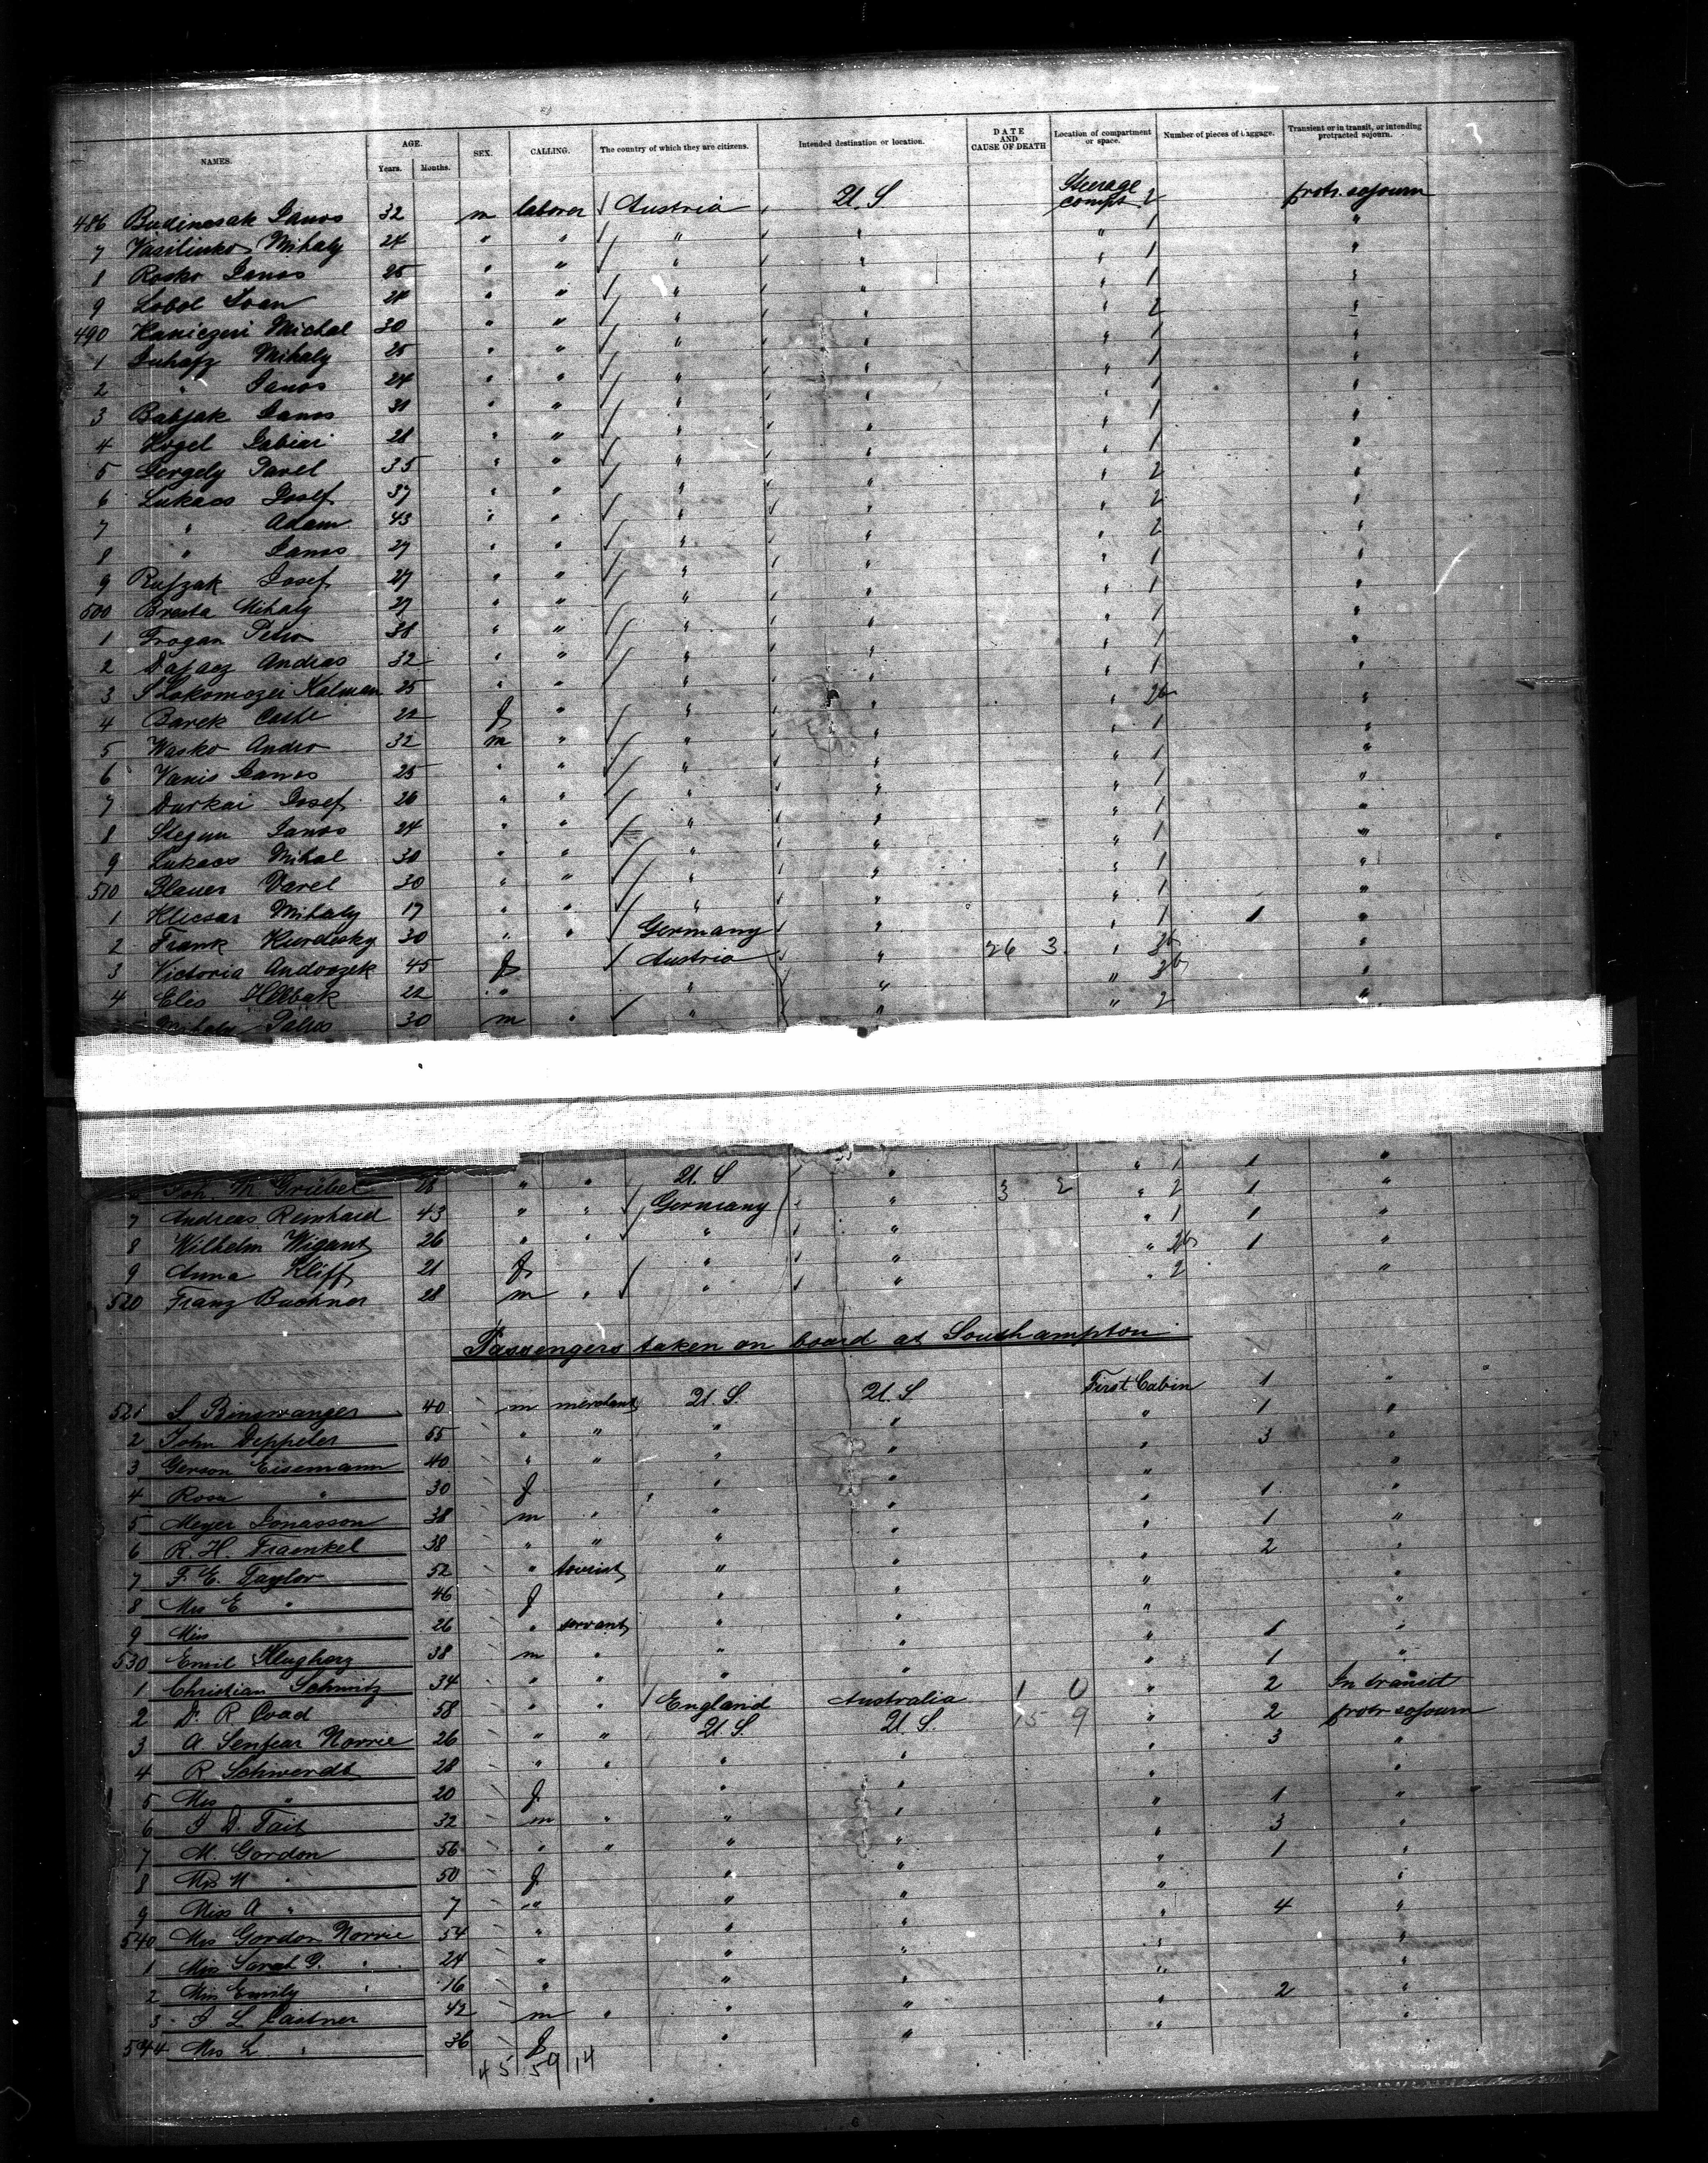 NAMES. AGE. Years. Months. SEX. CALLING. The country of which they are citizens. Intended destination or location. DATE AND CAUSE OF DEATH Location of compartment or space. Number of pieces of baggage. Transient or in transit, or intending protracted sojourn.
486 Budincsak Janos 32 m laborer Austria U. S Steerage compt 2 protr. sojourn
7 Vasilinko Mihaly 24 " " " " " 1 "
8 Rosko Janos 25 " " " " " 1 "
9 Lobol Ivan 24 " " " " " 1 "
490 Michal 30 " " " " " 2 "
1 Juhasz Mihaly 25 " " " " " 1 "
2 " Janos 24 " " " " " 1 "
3 Babjak Janos 31 " " " " " 1 "
4 Kogel 28 " " " " " 1 "
5 Gergely Pavel 35 " " " " " 1 "
6 Lukacs Josef 37 " " " " " 2 "
7 " Adam 43 " " " " " 2 "
8 " Janos 27 " " " " " 2 "
9 Josef 27 " " " " " 1 "
500 Mihaly 27 " " " " " 1 "
1 Trogan 38 " " " " " 1 "
2 Andras 32 " " " " " 1 "
3 Kalman 25 " " " " " 1 "
4 Barek 22 f " " " " 2b "
5 Wasko Andro 32 m " " " " 1 "
6 Vanis Janos 25 " " " " " 1 "
7 Durkai Josef 26 " " " " " 1 "
8 Stegun Janos 24 " " " " " 1 "
9 Lukacs Mihal 30 " " " " " 1 "
510 Blauer 30 " " " " " 1 "
1 Klicsar Mihaly 17 " " " " " 1 "
2 Frank Kurdesky 30 " " Germany " " 1 1 "
3 Victoria Andoszek 45 f Austria " 26 3 " 3b "
4 Elis 22 " " " " 3b "
Mihaly 30 m " " " " 2 "
6 Joh. M Griebel 28 " " U. S " " 1 1 "
7 Andreas Reinhard 43 " " Germany " 3 2 " 2 1 "
8 Wilhelm Wigant 26 " " " " " 1 1 "
9 Anna Kliff 21 f " " " 2b 1 "
520 Franz Buchner 28 m " " " " 2 "
Passengers taken on board at Southampton
521 S. Binswanger 40 m merchant U. S. U. S First Cabin 1 "
2 John Deppeler 55 " " " " " 1 "
3 Gerson Eisemann 40 " " " " " 3 "
4 Rosa " 30 f " " " "
5 Meyer Jonasson 38 m " " " " 1 "
6 R. H. Fraenkel 38 " " " " " 1 "
7 F. E. Taylor 52 " tourist " " " 2 "
8 Mrs E " 46 f " " " "
9 Miss 26 " servant " " " "
530 Emil Klugherz 38 m " " " " 1 "
1 Christian Schmitz 34 " " " " " 1 "
2 D. R Coad 58 " " England Australia 1 0 " 2 In transit
3 A Senfear Norrie 26 " " U. S. U. S. 15 9 " 2 protr sojourn
4 R Schwerdt 28 " " " " " 3 "
5 Mrs " 20 f " " " "
6 J. D. Tait 32 m " " " " 1 "
7 M. Gordon 56 " " " " " 3 "
8 Mrs M " 50 f " " " 1 "
9 Miss A " 7 " " " " "
540 Mrs Gordon Norrie 54 " " " " 4 "
1 Miss Sarah G. " 24 " " " " "
2 Miss Emily " 16 " " " " "
3 J L Castner 42 m " " " " 2 "
544 Mrs L " 36 f " " " "
45 59 14